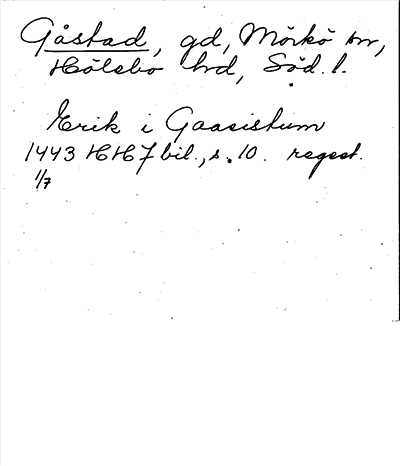 Gåstad, gd, Mörkö sn,
Hölebo hrd, Söd. l.
Erik i Gaasistum
1443 HH 7 bil., s. 10. regest.
1/7